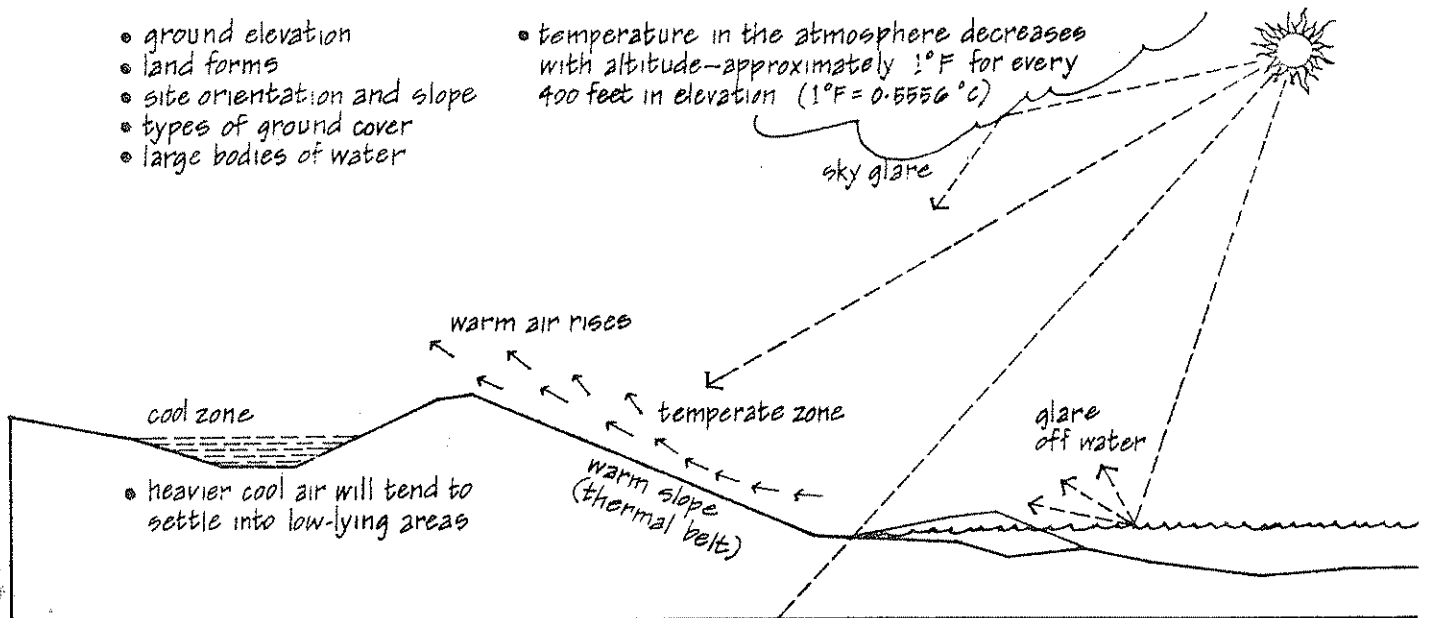 • ground elevation
• land forms
• site orientation and slope
• types of ground cover
• large bodies of water
• temperature in the atmosphere decreases
with altitude–approximately 1°F for every
400 feet in elevation (1°F = 0.5556 °C)
sky glare
warm air rises
cool zone
temperate zone
glare
off water
warm slope
(thermal belt)
• heavier cool air will tend to
settle into low-lying areas